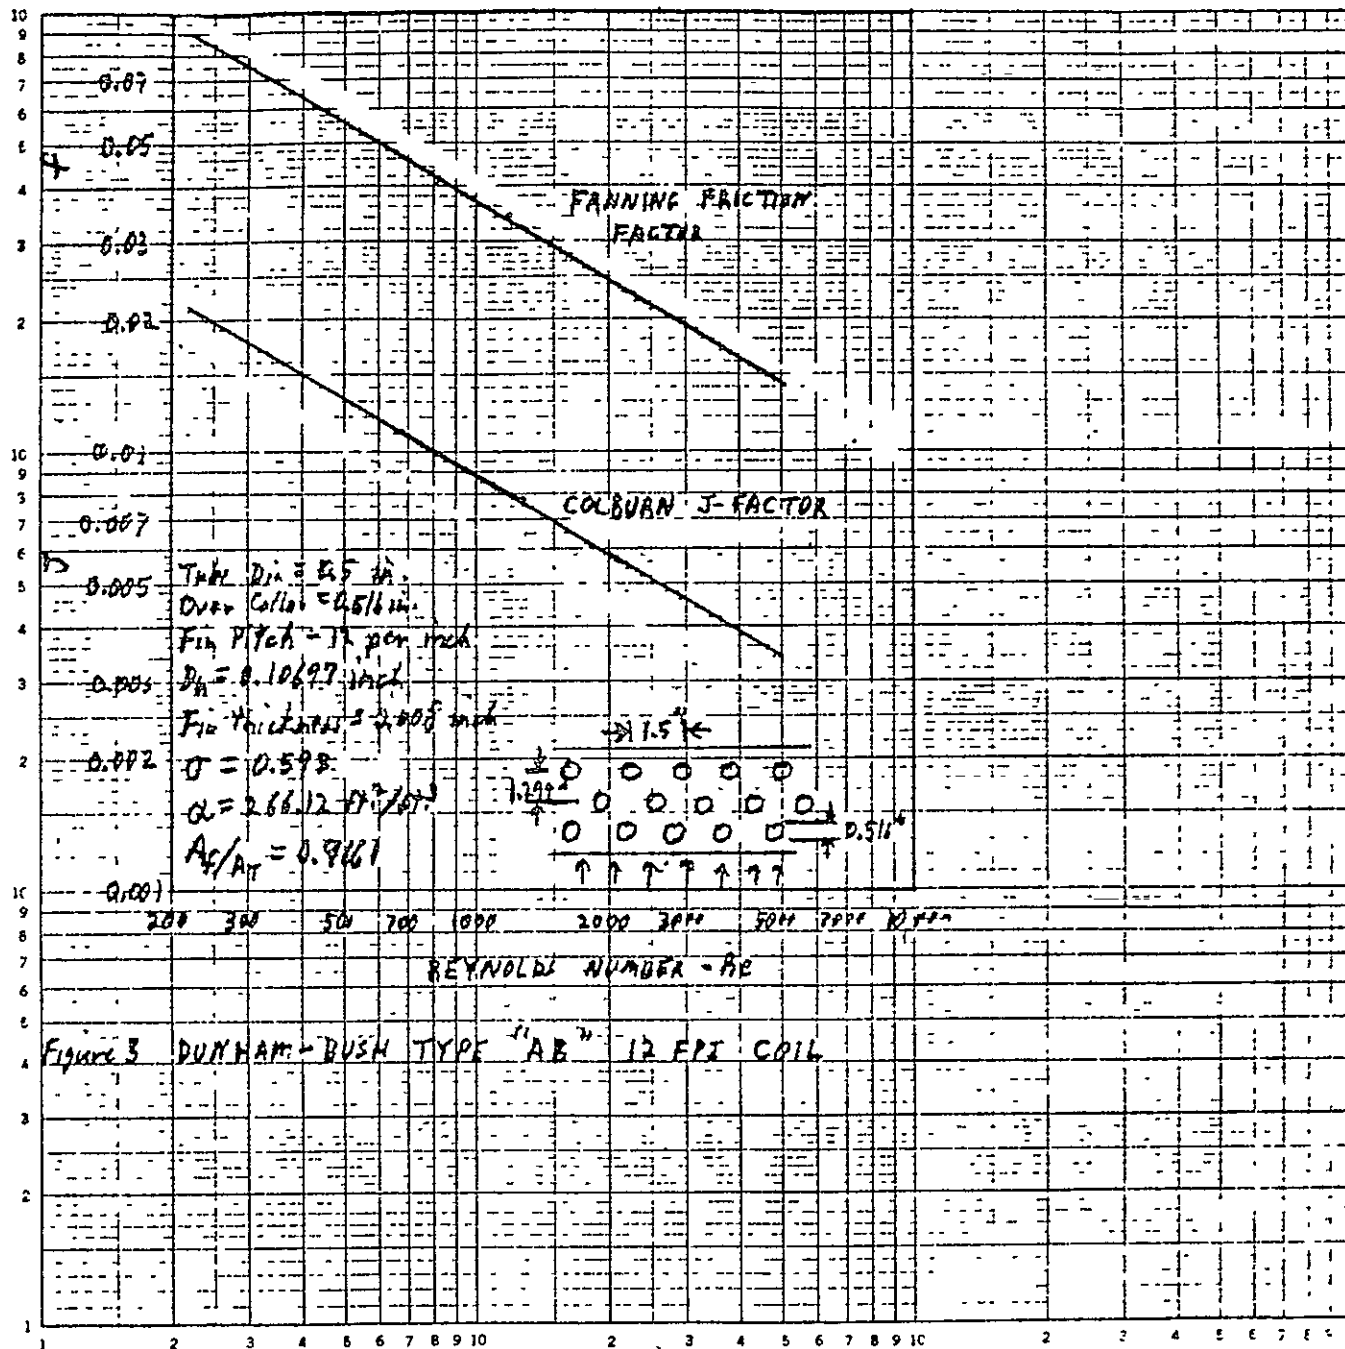 10
9
8
7
6
5
4
3
2
10
9
8
7
6
5
4
3
2
10
9
8
7
6
5
4
3
2
1
f
0.07
0.05
0.03
0.02
0.01
0.007
0.005
0.003
0.002
0.001
FANNING FRICTION
FACTOR
COLBURN J-FACTOR
Tube Dia = 0.5 in.
Over Collar = 0.516 in.
Fin Pitch - 12 per inch
Dh = 0.10697 inch
Fin Thickness = inch
σ = 0.598
α = 266.12 ft²/ft³
Af/AT = 0.9161
1.5"
1.299"
0.516"
200 300 500 700 1000 2000 3000 5000 7000
REYNOLDS NUMBER - Re
Figure 3 DUNHAM-BUSH TYPE "AB" 12 FPI COIL
1 2 3 4 5 6 7 8 9 10 2 3 4 5 6 7 8 9 10 2 3 4 5 6 7 8 9